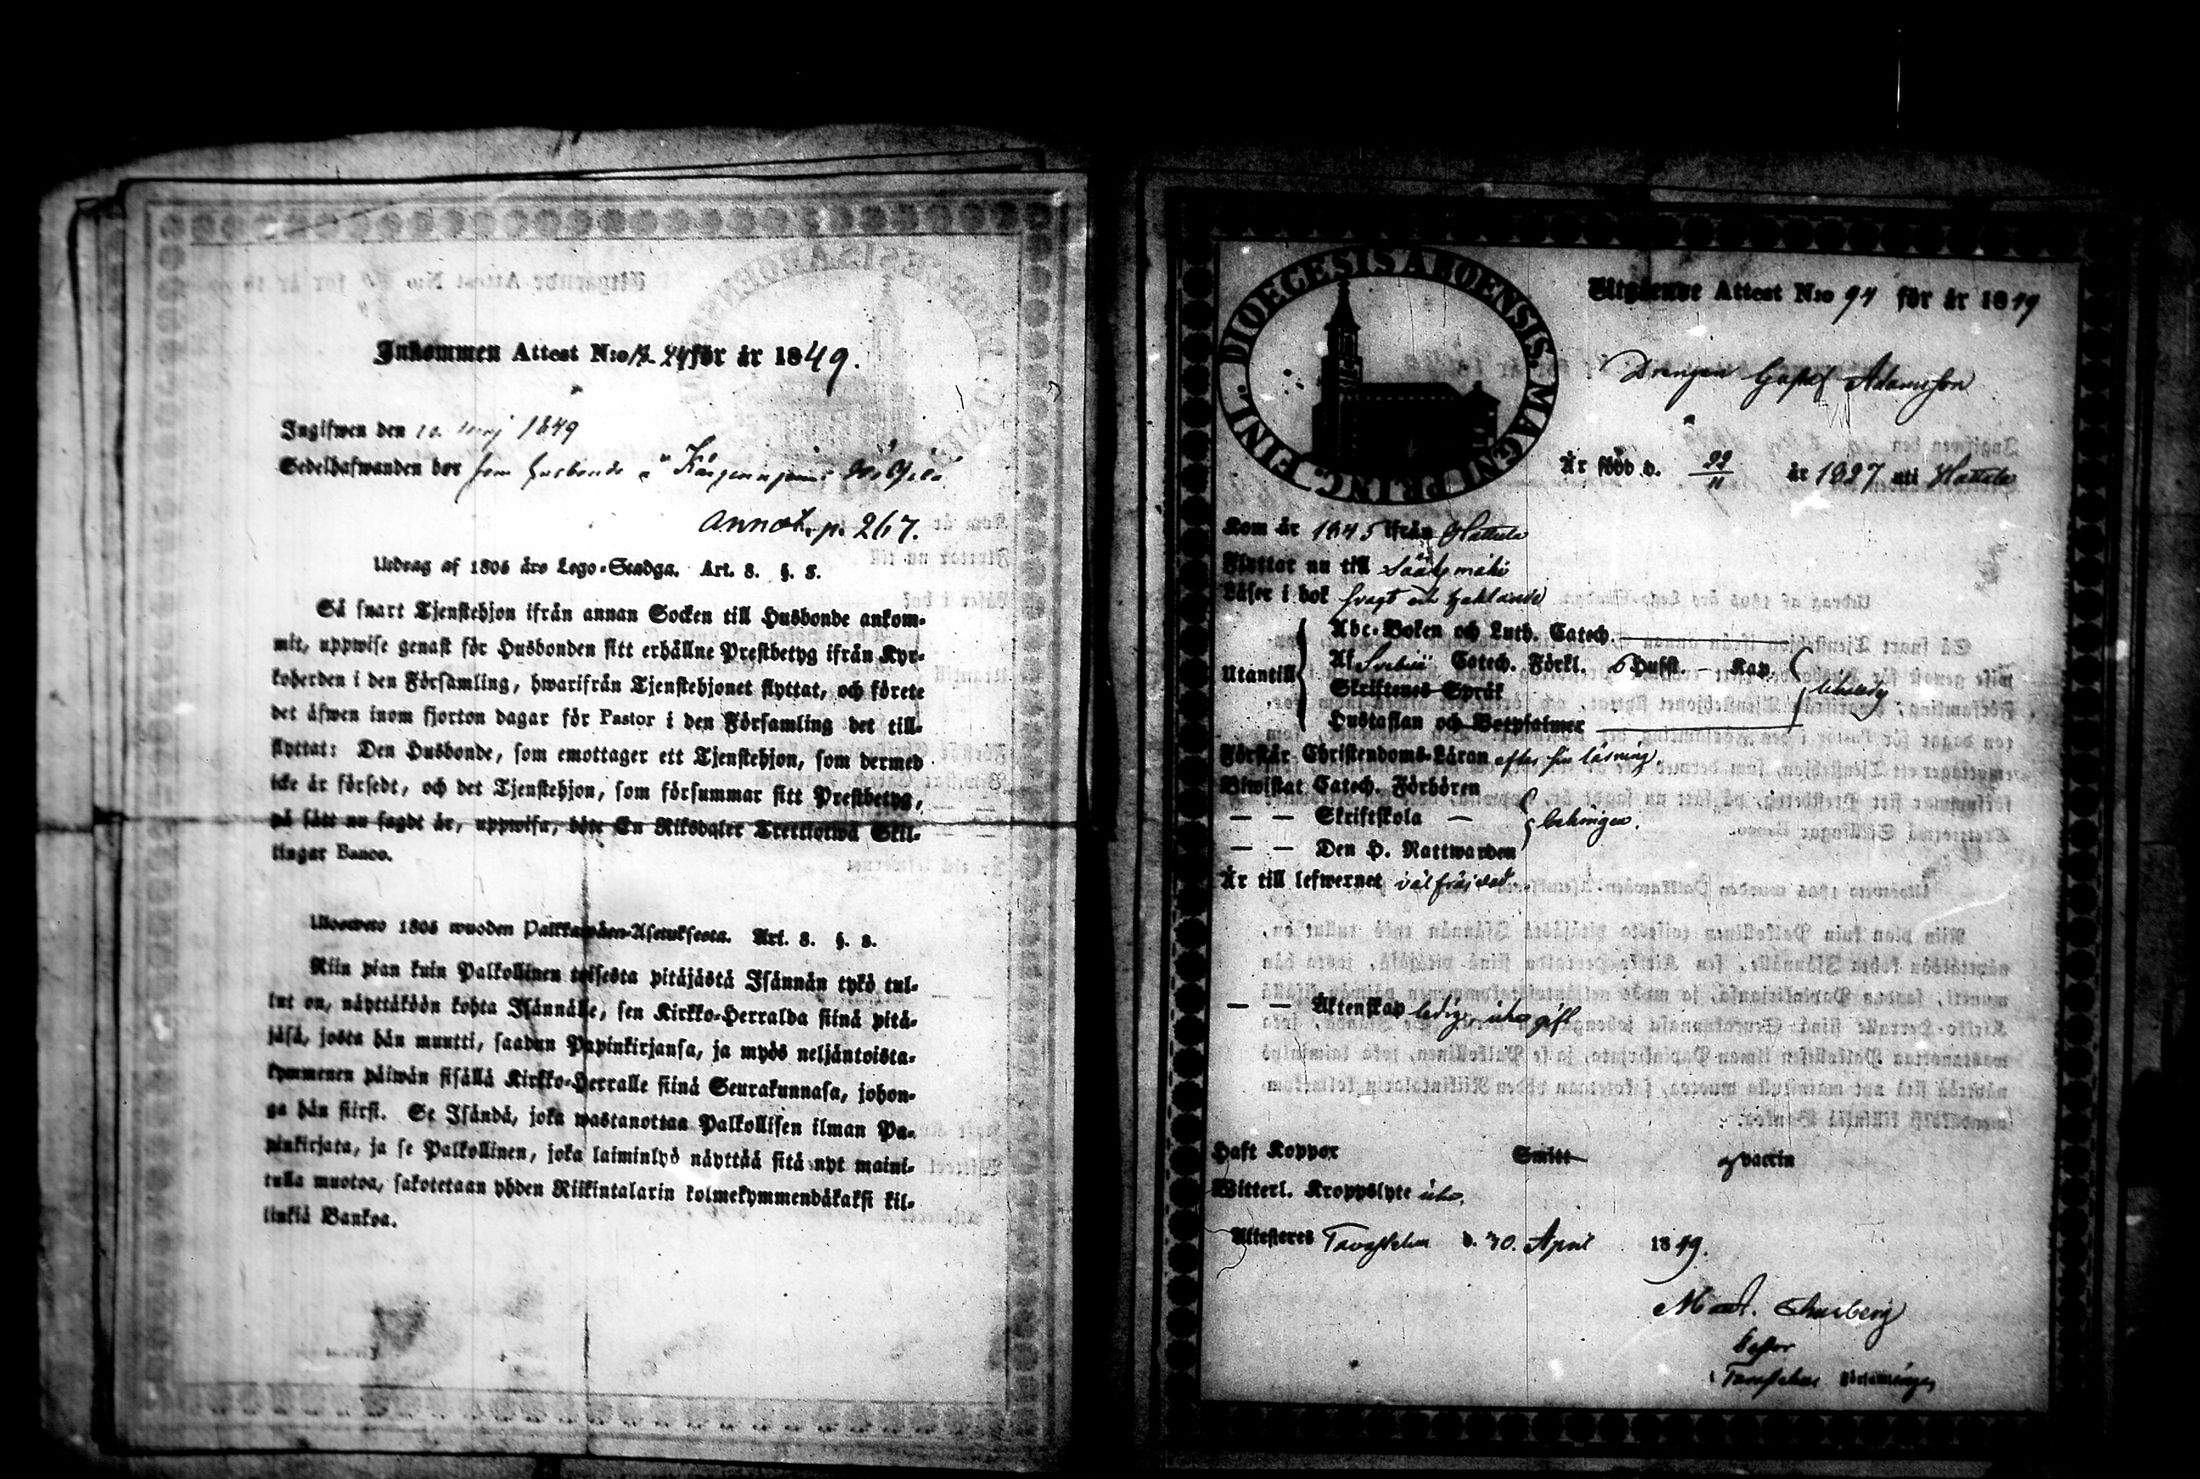 Inkommen Attest N:o 24 för år 1849.
Ingifwen den 10. Maj 1849
Sedelhafwanden bor som husbonde å
annot. p. 267.
Utdrag af 1805 års Lego-Stadga. Art. 3. §. 8.
Så snart Tjenstehjon ifrån annan Socken till Husbonde ankom-
mit, uppwise genast för Husbonden sitt erhållne Prestbetyg ifrån Kyr-
koherden i den Församling, hwarifrån Tjenstehjonet flyttat, och förete
det äfwen inom fjorton dagar för Pastor i den Församling det till-
flyttat: Den Husbonde, som emottager ett Tjenstehjon, som dermed
icke är försedt, och det Tjenstehjon, som försummar sitt Prestbetyg,
på sätt nu sagdt är, uppwisa, böte En Riksdaler Trettiotwå Skil-
lingar Banco.
Ulosweto 1805 wuoden Palkkawäen-Asetuksesta. Art. 3. §. 8.
Niin pian kuin Palkollinen toisesta pitäjästä Isännän tykö tul-
lut on, näyttäköön kohta Isännälle, sen Kirkko-Herralda siinä pitä-
jäsä, josta hän muutti, saadun Papinkirjansa, ja myös neljäntoista-
kymmenen päiwän sisällä Kirkko-Herralle siinä Seurakunnasa, johon-
ga hän siirst. Se Isändä, joka wastanottaa Palkollisen ilman Pa-
pinkirjata, ja se Palkollinen, joka laiminlyö näyttää sitä nyt maini-
tulla muotoa, sakotetaan yhden Riikintalarin kolmekymmendäkaksi kil-
linkiä Bankoa.
FINL. DIOECESIS ABOENSIS. MAGNI PRINC.
Utgående Attest N:o 94 för år 1849
Drengen Gustaf Adamsson
Är född d. 22/11 år 1827 uti Hattula
Kom år 1845 ifrån Hattula
Flyttar nu till Sääksmäki
Läser i bok svagt och haklande
Abc-Boken och Luth. Catech.
Utantill Af Svebilii Catech. Förkl. 6 Hufst. — Kap.
Skriftenes Språk
Hustaflan och Botpsalmer
Förstår Christendoms-Läran efter sin läsning.
Biwistat Catech. Förhören
— — Skriftskola — behörigen.
— — Den H. Nattwarden
Är till lefwernet väl frejdad.
— — Äktenskap ledig, icke gift
Haft Koppor Smitt af vaccin
Witterl. Kroppslyte icke.
Attesteres Tavastehus d. 30. April 1849.